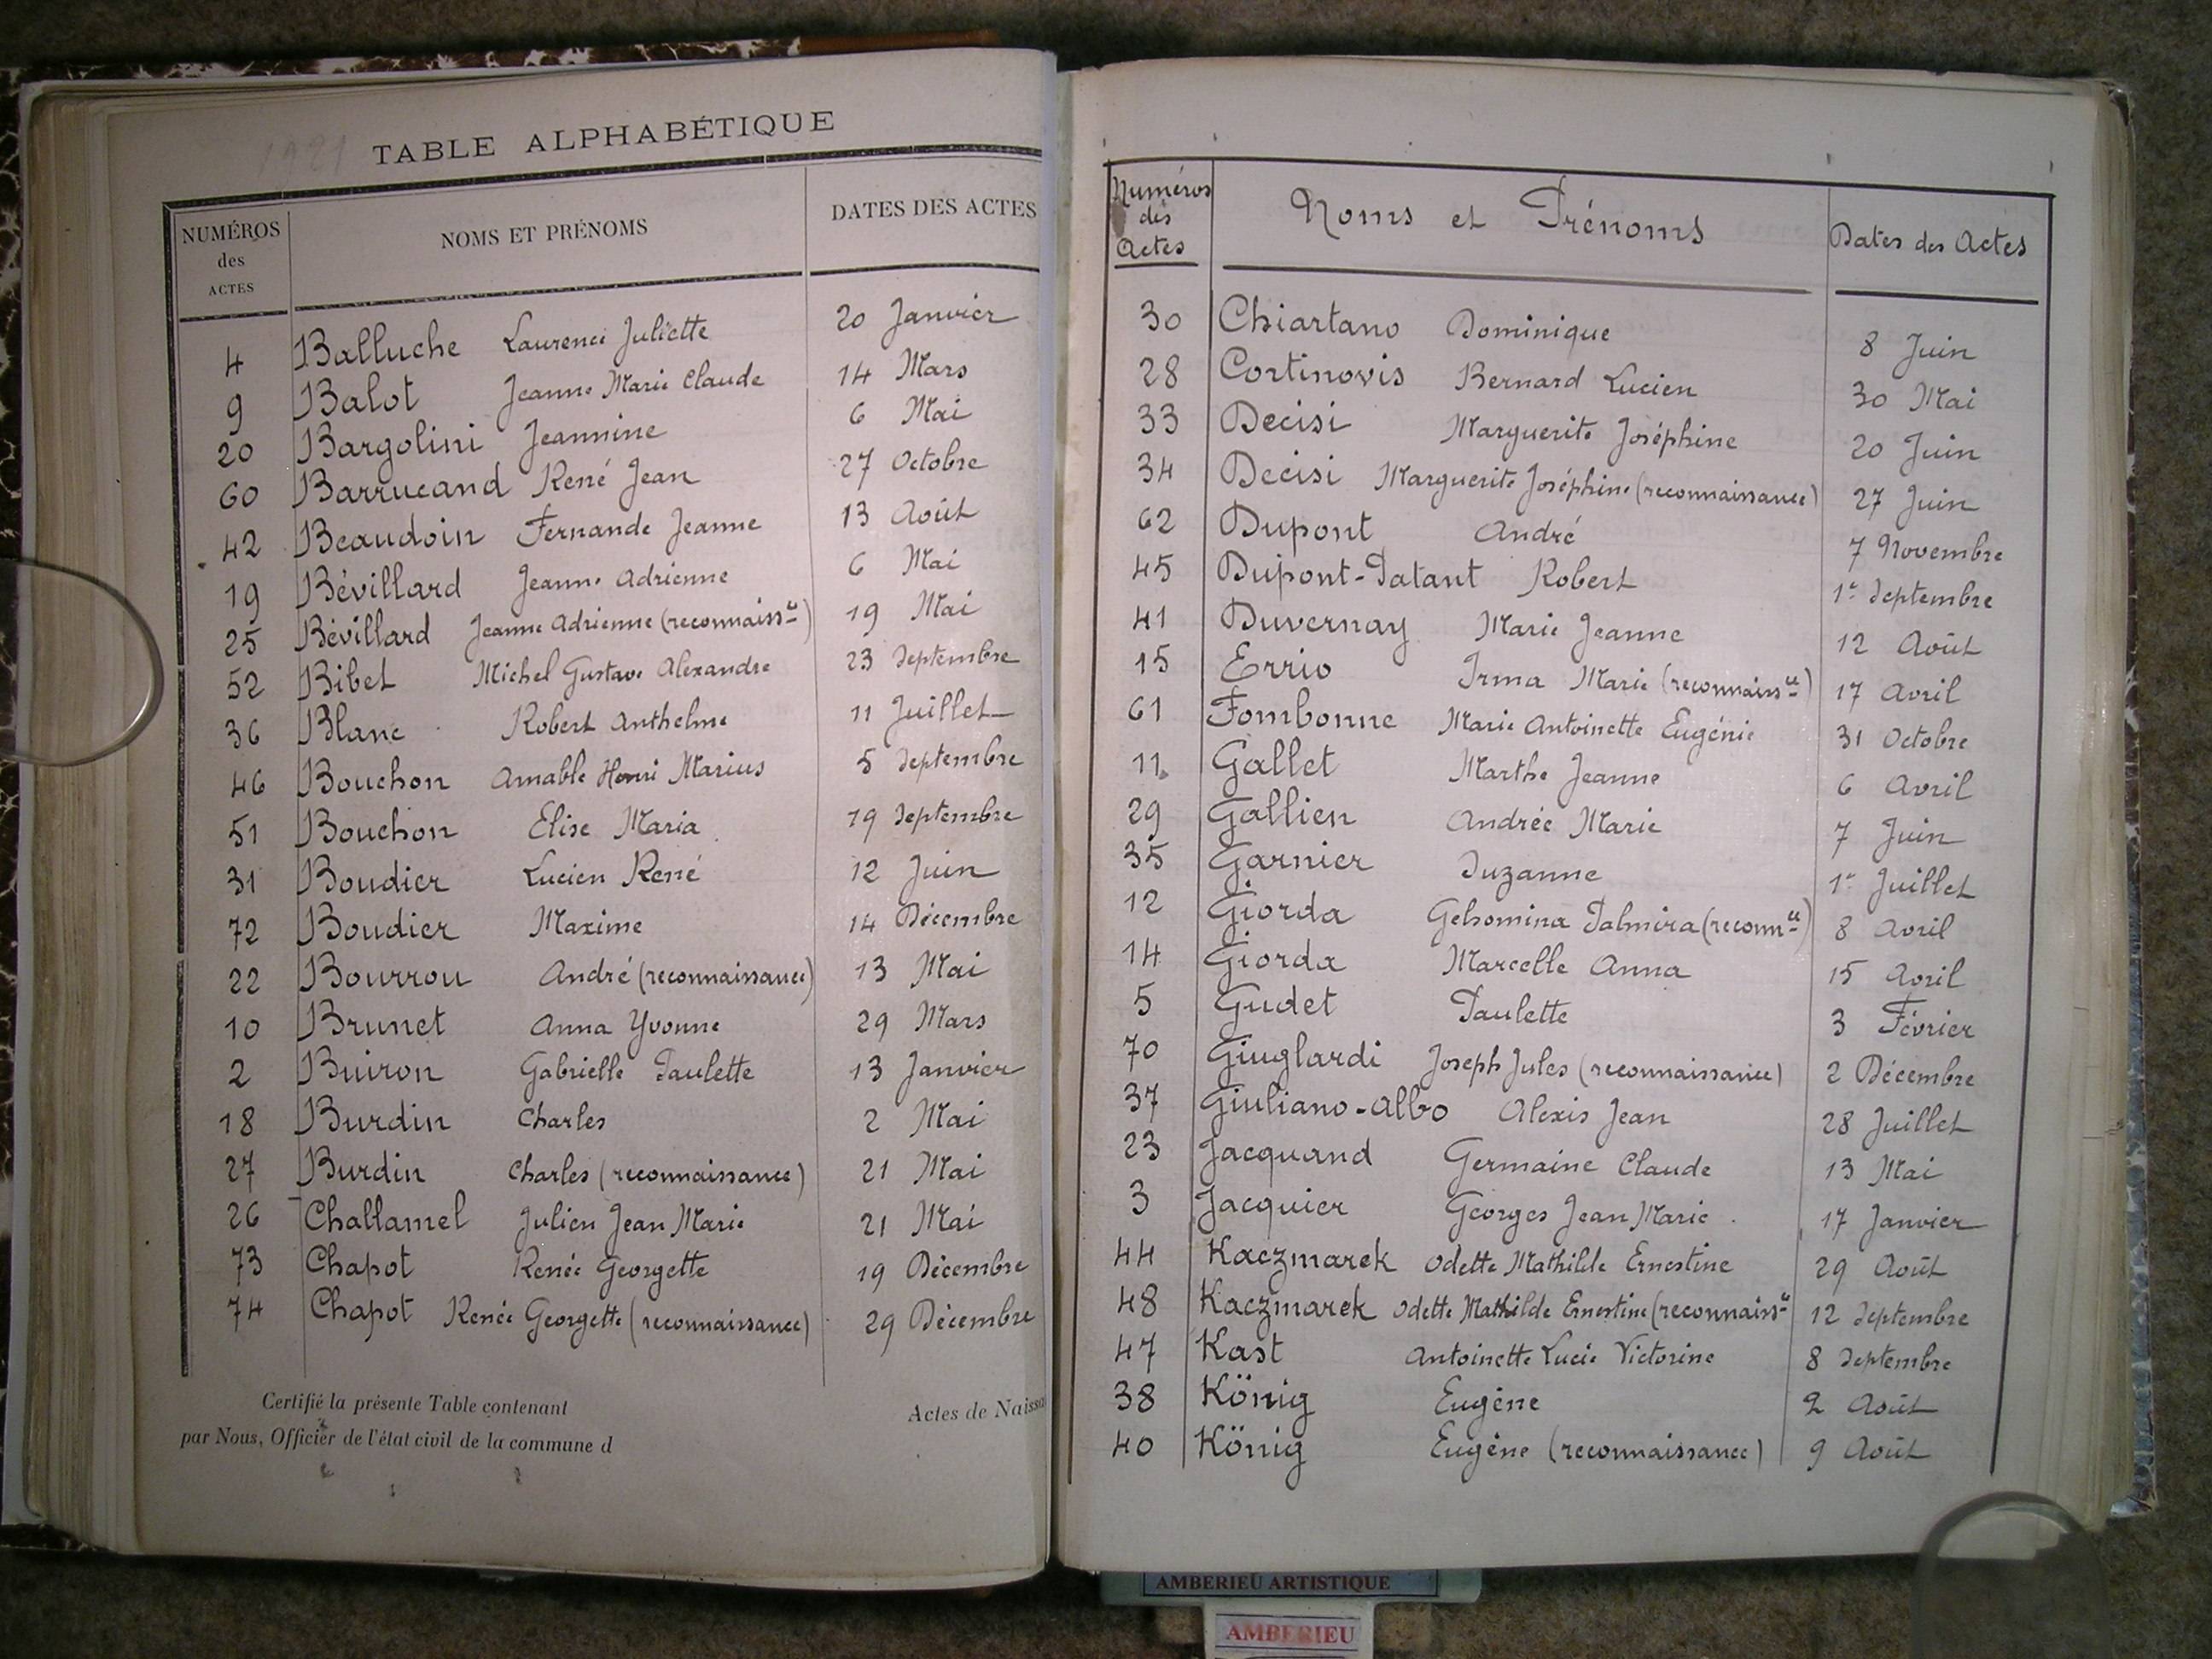 1921
TABLE ALPHABÉTIQUE
NUMÉROS des ACTES NOMS ET PRÉNOMS DATES DES ACTES
4 Balluche Laurence Juliette 20 Janvier
9 Balot Jeanne Marie Claude 14 Mars
20 Bargolini Jeannine 6 Mai
60 Barrucand René Jean 27 Octobre
42 Beaudoin Fernande Jeanne 13 Août
19 Bévillard Jeanne Adrienne 6 Mai
25 Bévillard Jeanne Adrienne (reconnaissce) 19 Mai
52 Bibet Michel Gustave Alexandre 23 Septembre
36 Blanc Robert Anthelme 11 Juillet
46 Bouchon Amable Henri Marius 5 Septembre
51 Bouchon Elise Maria 19 Septembre
31 Boudier Lucien René 12 Juin
72 Boudier Maxime 14 Décembre
22 Bourrou André (reconnaissance) 13 Mai
10 Brunet Anna Yvonne 29 Mars
2 Buiron Gabrielle Paulette 13 Janvier
18 Burdin Charles 2 Mai
27 Burdin Charles (reconnaissance) 21 Mai
26 Challamel Julien Jean Marie 21 Mai
73 Chapot Renée Georgette 19 Décembre
74 Chapot Renée Georgette (reconnaissance) 29 Décembre
Certifié la présente Table contenant Actes de Naissa
par Nous, Officier de l'état civil de la commune d
Numéros des Actes Noms et Prénoms Dates des Actes
30 Chiartano Dominique 8 Juin
28 Cortinovis Bernard Lucien 30 Mai
33 Decisi Marguerite Joséphine 20 Juin
34 Decisi Marguerite Joséphine (reconnaissance) 27 Juin
62 Dupont André 7 Novembre
45 Dupont-Patant Robert 1er Septembre
41 Duvernay Marie Jeanne 12 Août
15 Errio Irma Marie (reconnaissce) 17 Avril
61 Fombonne Marie Antoinette Eugénie 31 Octobre
11 Gallet Marthe Jeanne 6 Avril
29 Gallien Andrée Marie 7 Juin
35 Garnier Suzanne 1er Juillet
12 Giorda Gelsomina Palmira (reconnce) 8 Avril
14 Giorda Marcelle Anna 15 Avril
5 Gudet Paulette 3 Février
70 Giuglardi Joseph Jules (reconnaissance) 2 Décembre
37 Giuliano-Albo Alexis Jean 28 Juillet
23 Jacquand Germaine Claude 13 Mai
3 Jacquier Georges Jean Marie 17 Janvier
44 Kaczmarek Odette Mathilde Ernestine 29 Août
48 Kaczmarek Odette Mathilde Ernestine (reconnaissce 12 Septembre
47 Kast Antoinette Lucie Victorine 8 Septembre
38 König Eugène 2 Août
40 König Eugène (reconnaissance) 9 Août
AMBERIEU ARTISTIQUE
AMBERIEU